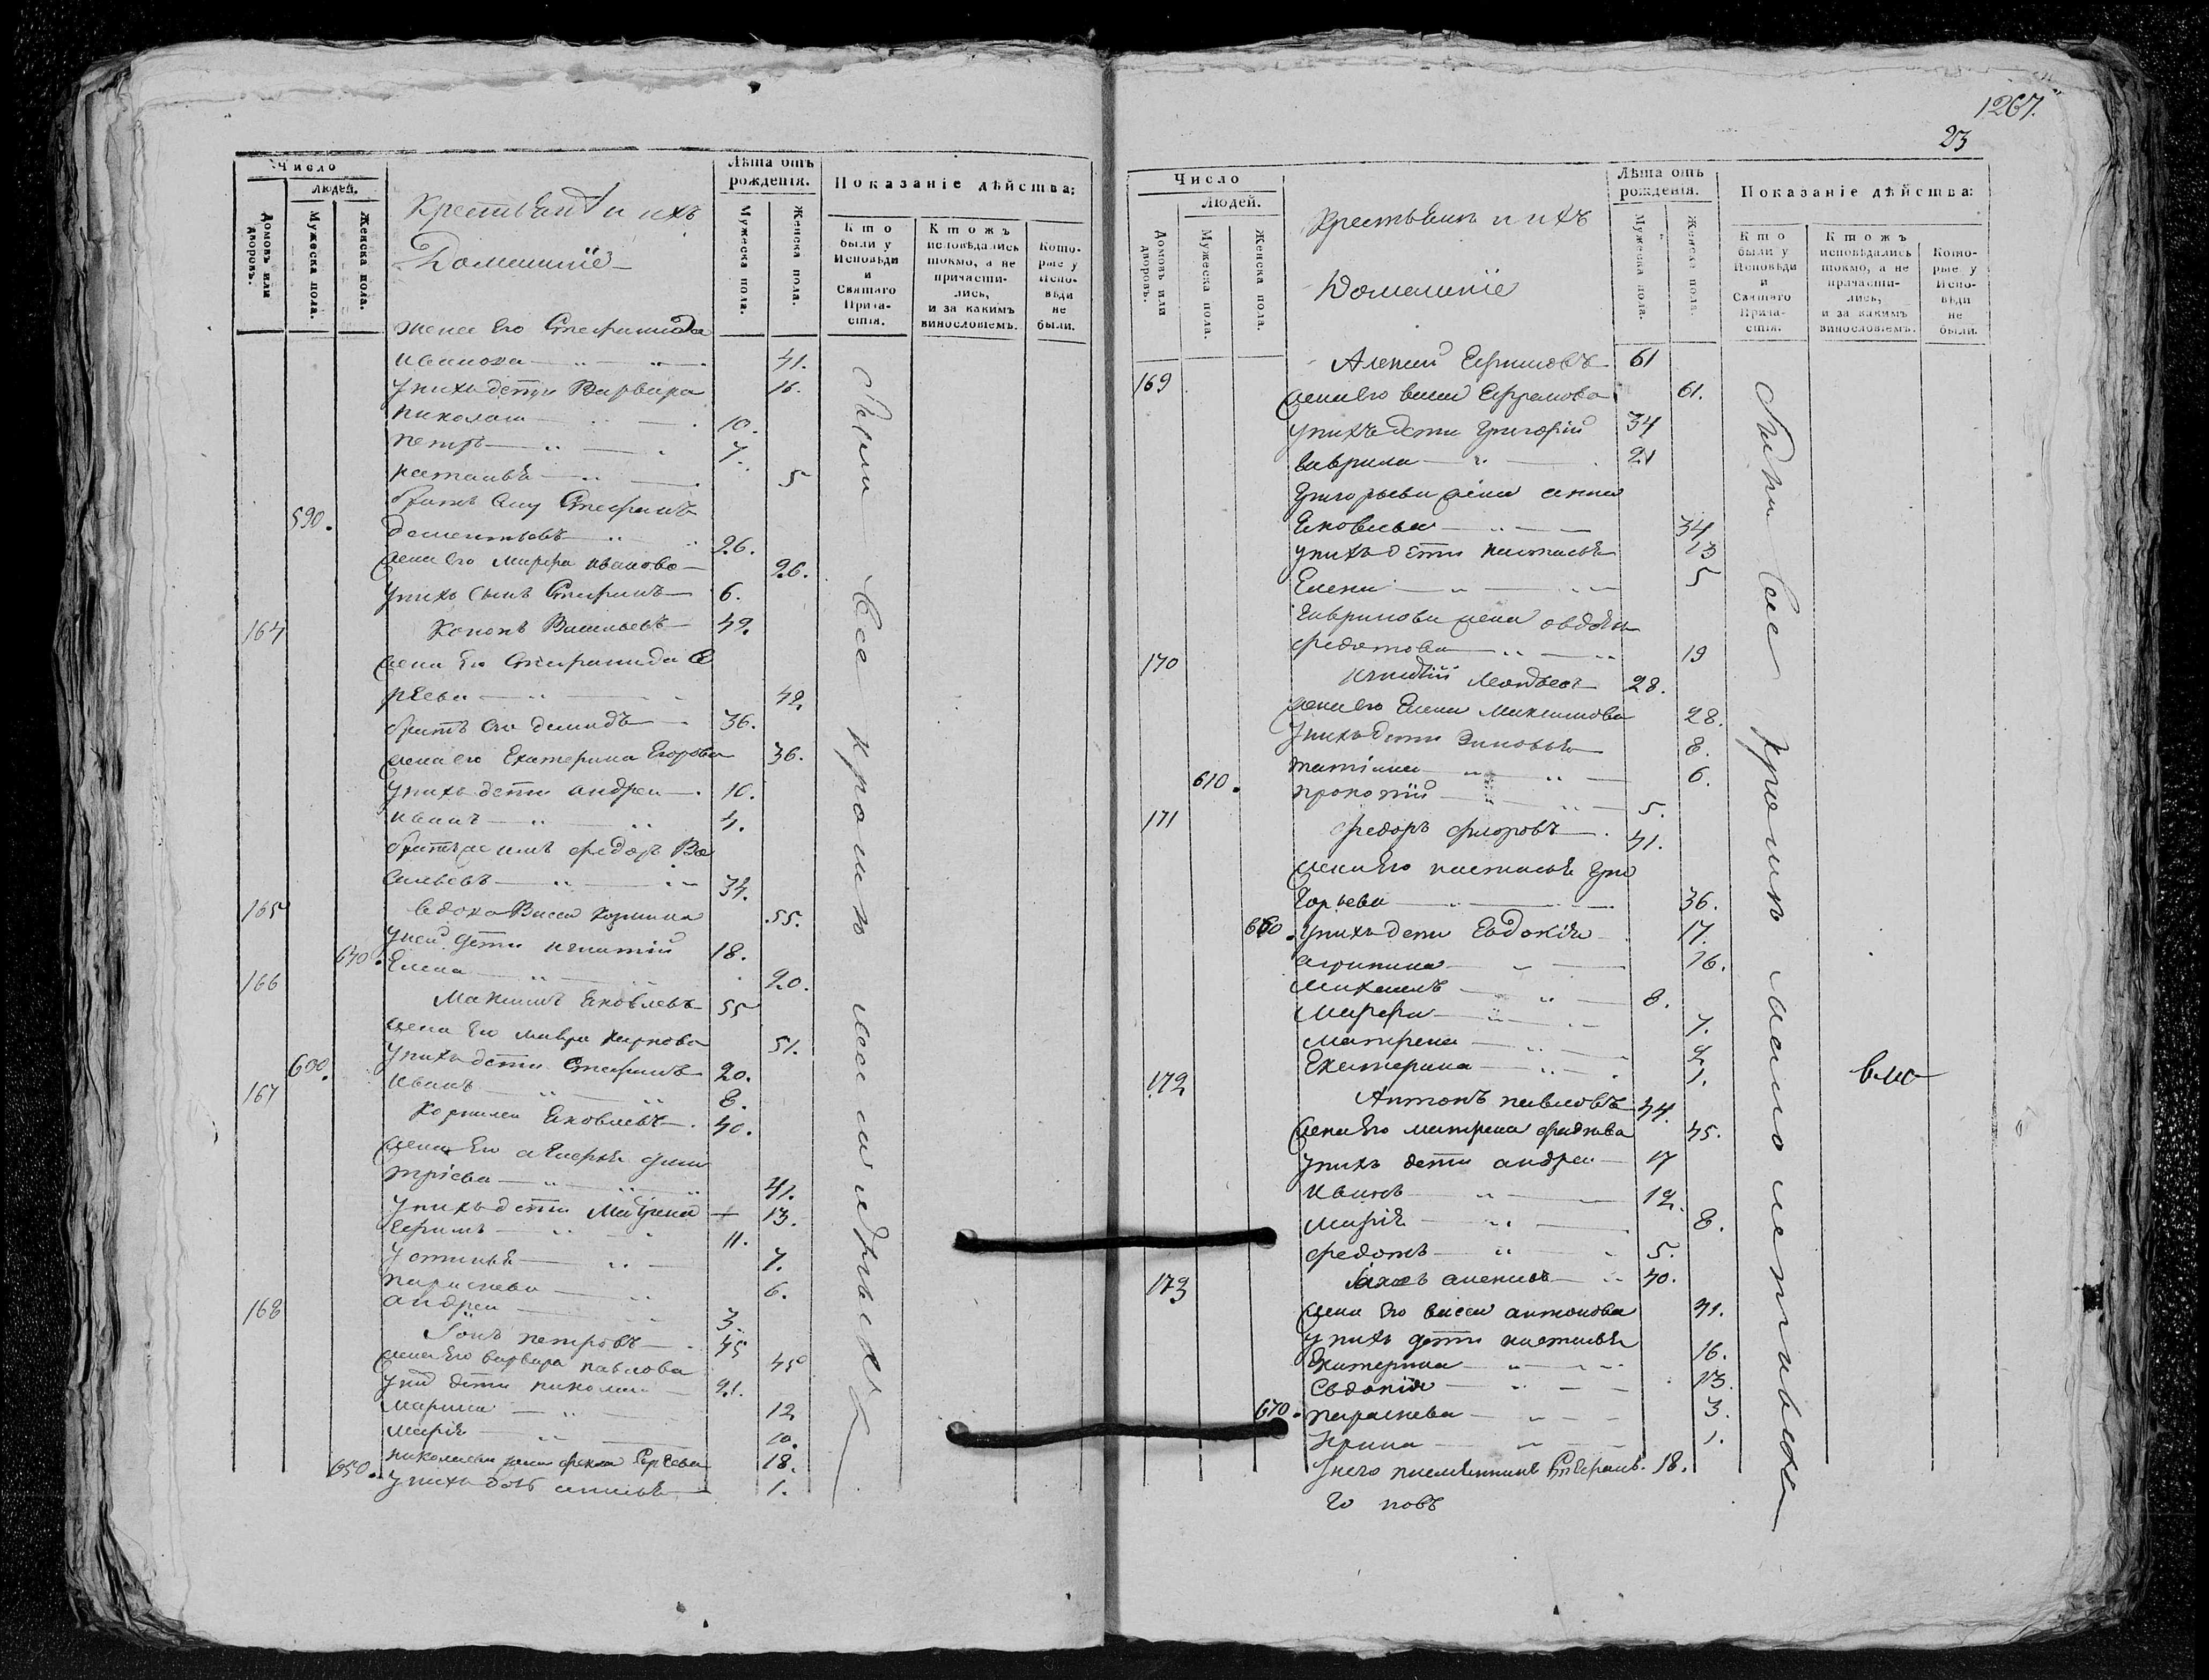 Число
людей.
Домовъ или дворовъ.
Мужеска пола.
Женска пола.
Крестьянъ и ихъ
Домашніе
Лѣта отъ рожденія.
Мужеска пола.
Женска пола.
Показаніе дѣйства:
Кто были у Исповѣди и Святаго Прича-стія.
Ктожъ исповѣдались токмо, а не причасти-лись, и за какимъ винословіемъ.
Кото-рые у Испо-вѣди не были.
жена его Степанида
Иванова 41.
у нихъ дети Варвара 16.
николаи 10.
петръ 7.
наталья 5
братъ ему Стефанъ
590. дементьевъ 26.
жена его марфа иванова 26.
у нихъ сынъ Стефанъ 6.
164 Кононъ Васильевъ 42.
жена его Степанида
42
братъ его демидъ 36.
жена его Екатерина Егорова 36.
у нихъ дети андреи 10.
иванъ 4.
братъ же имъ федоръ Ва
сильевъ 34.
165 вдова Васса кузмина 55.
у неи дети игнатіи 18.
640. Елена 20.
166 Максимъ Яковлевъ 55
жена его мавра карпова 51.
600. у нихъ дети Стефанъ 20.
иванъ 8.
167 Корнилеи Яковлевъ 40.
жена его дми
тріева 41.
у нихъ дети Матрена 13.
Ефимъ 11.
устинья 7.
параскева 6.
андреи 3.
168 Іонъ петровъ 45
жена его варвара павлова 45
у нихъ дети николаи 21.
марина 12
марія 10.
николаева жена фекла Сергеева 18.
650. у нихъ дочь 1.
были все кромѣ
1267.
23
Число
Людей.
Домовъ или дворовъ.
Мужеска пола.
Женска пола.
Крестьянъ и ихъ
Домашніе
Лѣта отъ рожденія.
Мужеска пола.
Женска пола.
Показаніе дѣйства:
Кто были у Исповѣди и Святаго Прича-стія.
Ктожъ исповѣдались токмо, а не причасти-лись, и за какимъ винословіемъ.
Кото-рые у Испо-вѣди не были.
169 Алексѣй Ефимовъ 61
жена его васса Ефремова 61.
у нихъ дети григорій 34
гаврила 21
григорьева жена анна
Яковлева 34
у нихъ дети наталья 13
Елена 5
гаврилова жена авдотья
федотова 19
170 игнатій 28.
жена его Елена Максимова 28.
у нихъ дети Зиновья 8.
татіана 6.
610. прокопій 5.
171 федоръ флоровъ 41.
жена его настасья гри
горьева 36.
660. у нихъ дети Евдокія 17.
агрипина 16.
михаилъ 8.
марфа 7.
матрена 2
Екатерина 1.
172 Антонъ павловъ 44.
жена его матрена 45.
у нихъ дети андреи 17
иванъ 12.
марія 8.
федотъ 5.
173 40.
жена его васса антонова 41.
у нихъ дети настасья 16.
Екатерина 13
Евдокія
670. параскева 3.
Ирина 1.
у него племянникъ 18.
были все кромѣ малолетныхъ